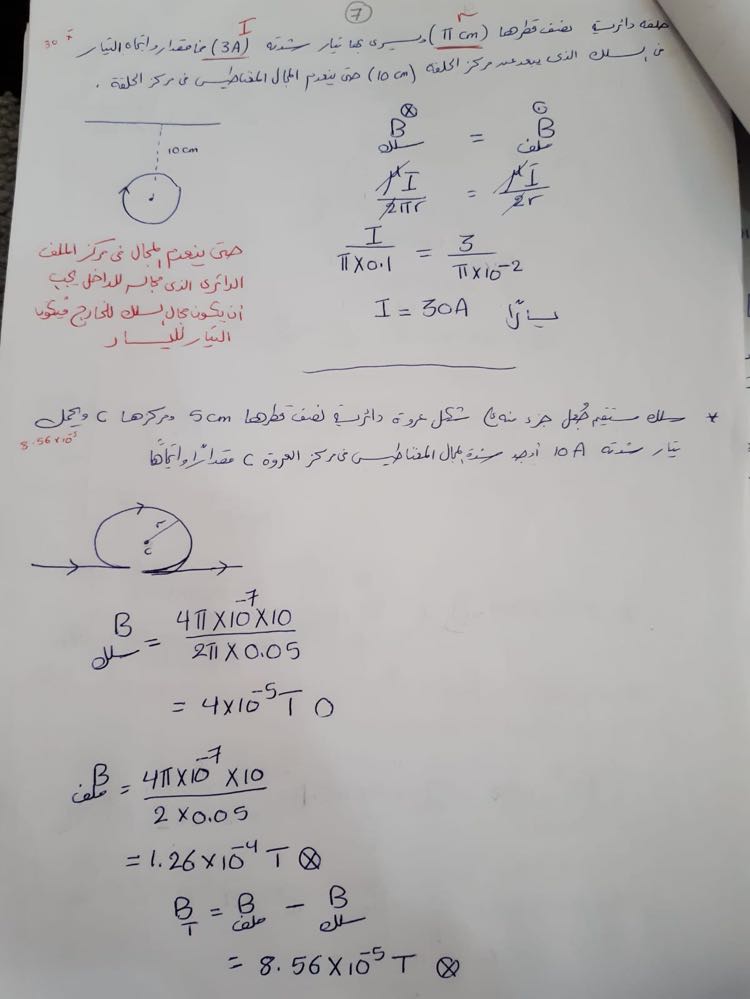 7
حلقه دائرية نصف قطرها (π cm) ويسرى بها تيار شدته (3A) فما مقدار واتجاه التيار
r
I
30
فى السلك الذى يبعد عن مركز الحلقه (10 cm) حتى ينعدم المجال المغناطيسى فى مركز الحلقة .
10 cm
B سلك ⊗ = B ملف ⊙
μI / 2πr = μI / 2r
I / π×0.1 = 3 / π×10⁻²
I = 30A يسارًا
حتى ينعدم المجال فى مركز الملف
الدائرى الذى مجاله للداخل يجب
أن يكون مجال السلك للخارج فيكون
التيار لليسار
* سلك مستقيم جُعل جزء منه على شكل عروة دائرية نصف قطرها 5cm ومركزها C ويحمل
8.56×10⁻⁵
تيار شدته 10A أوجد شدة المجال المغناطيسى فى مركز العروة C مقدارًا واتجاهًا
r
c
B سلك = 4π×10⁻⁷×10 / 2π×0.05
= 4×10⁻⁵ T O
B ملف = 4π×10⁻⁷×10 / 2×0.05
= 1.26×10⁻⁴ T ⊗
B_T = B ملف − B سلك
= 8.56×10⁻⁵ T ⊗